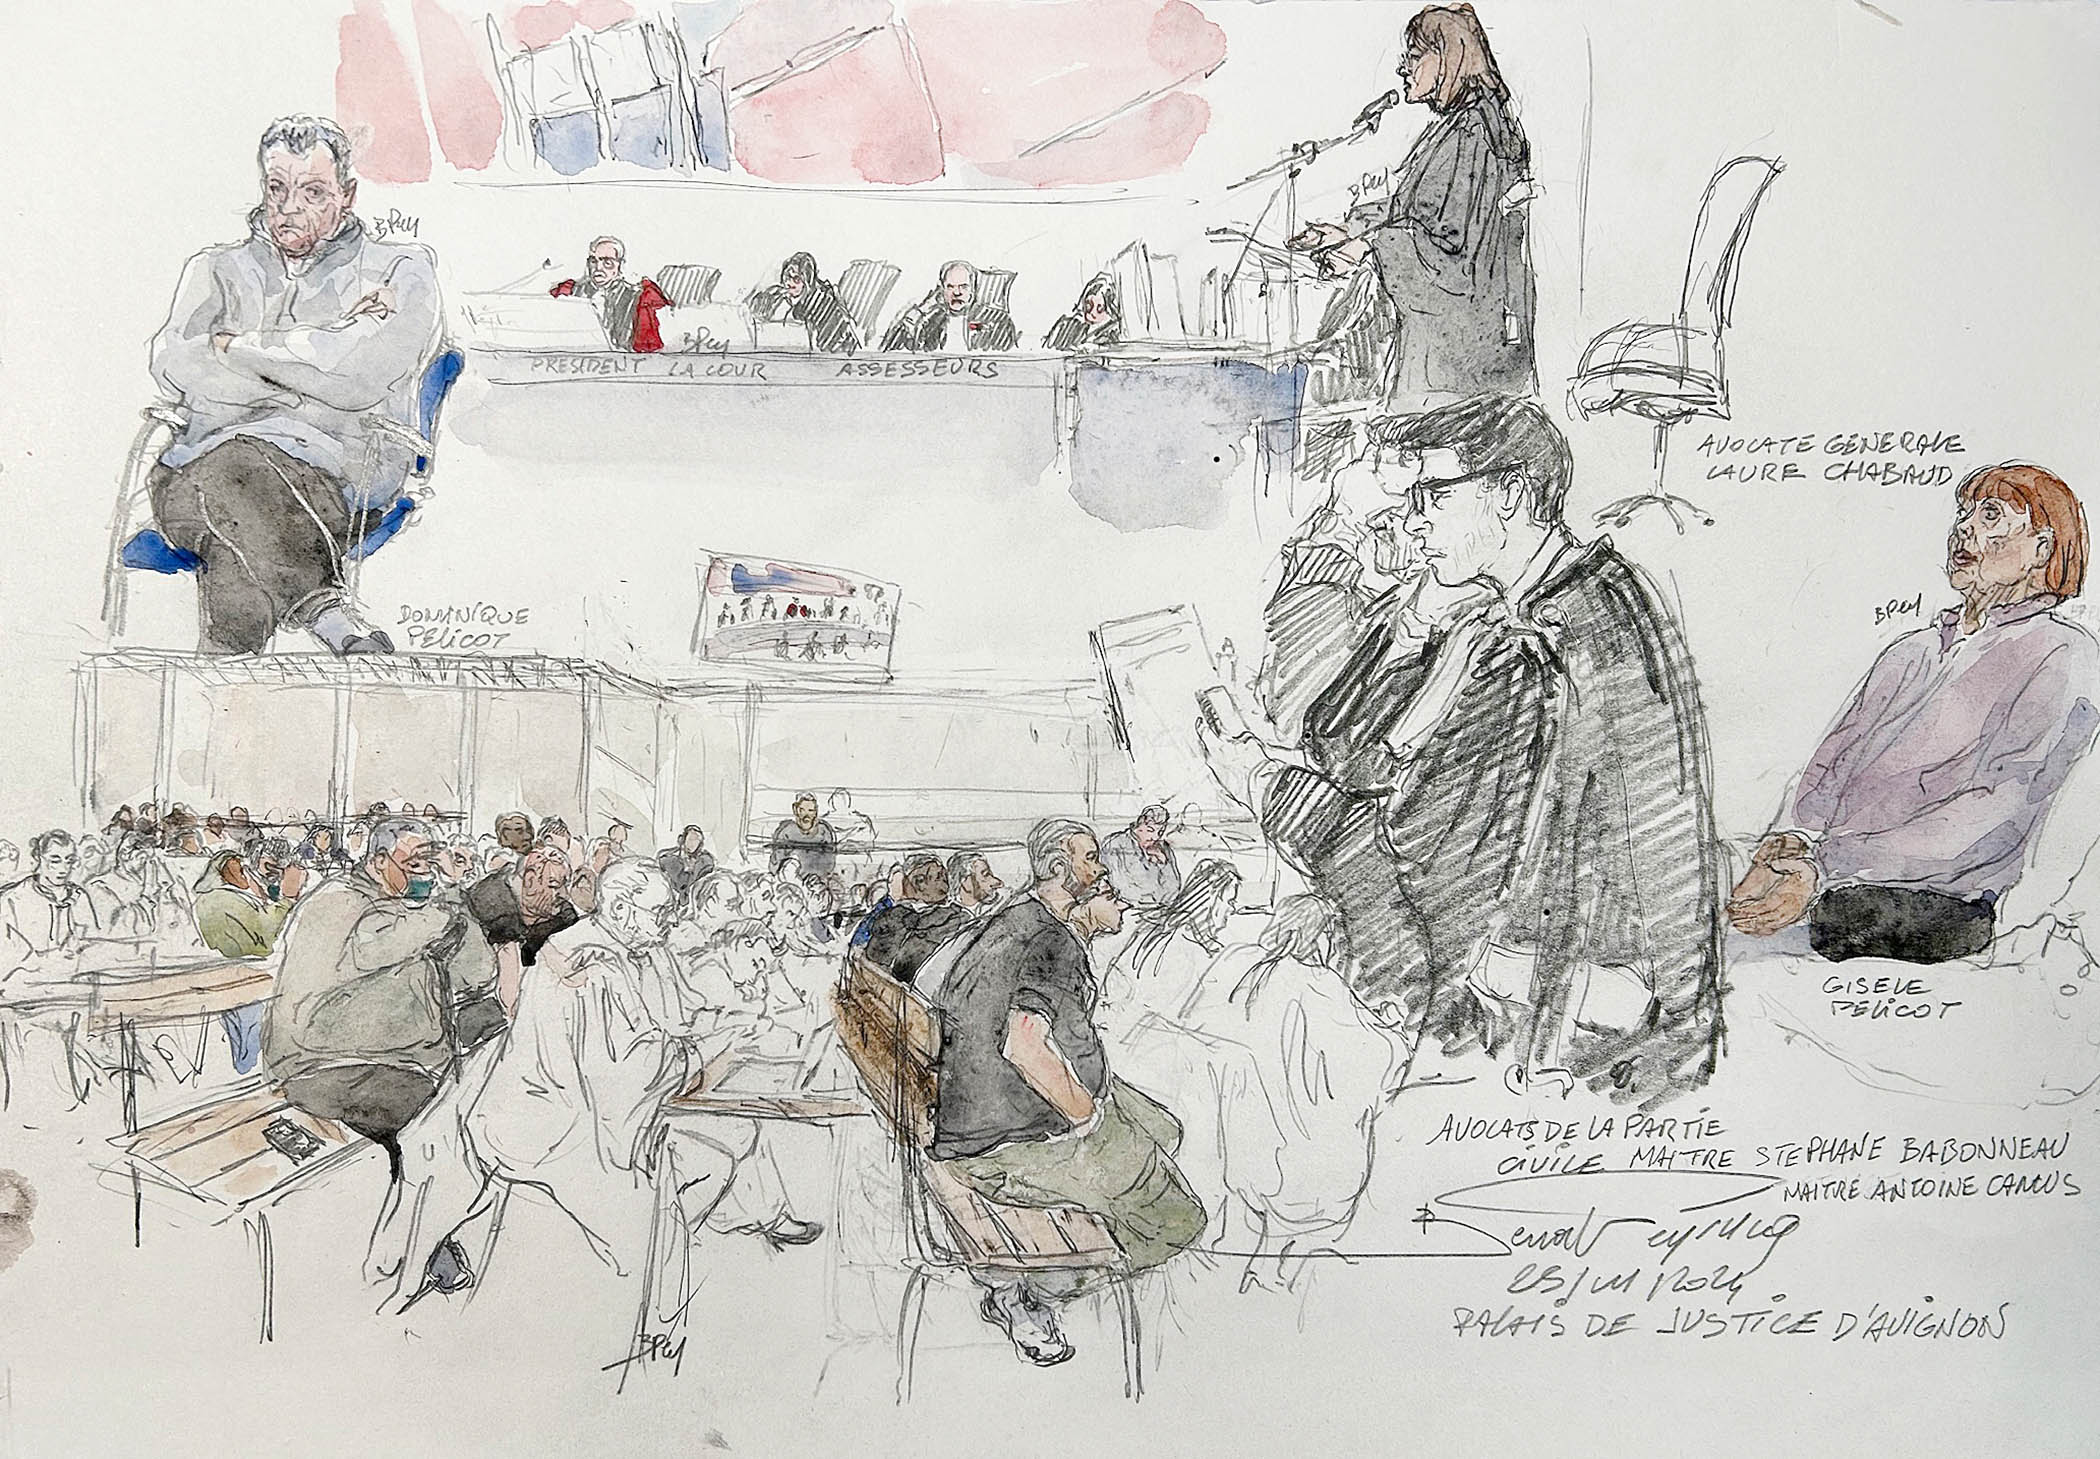 BPey
BPey
PRESIDENT LA COUR ASSESSEURS
BPey
AVOCATE GENERALE
LAURE CHABAUD
DOMINIQUE
PELICOT
BPey
GISELE
PELICOT
AVOCATS DE LA PARTIE
CIVILE MAITRE STEPHANE BABONNEAU
MAITRE ANTOINE CAMUS
PALAIS DE JUSTICE D'AVIGNON
BPey